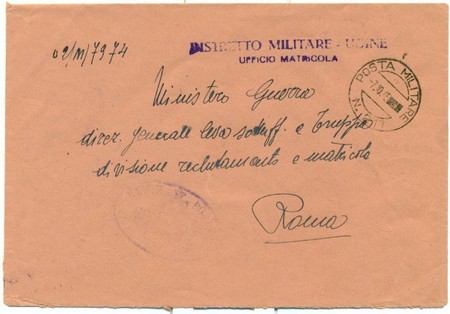 02/M/7974
DISTRETTO MILITARE - UDINE
UFFICIO MATRICOLA
POSTA MILITARE
Ministero Guerra
direz. generale leva sottuff. e Truppa
divisione reclutamento e matricola
Roma